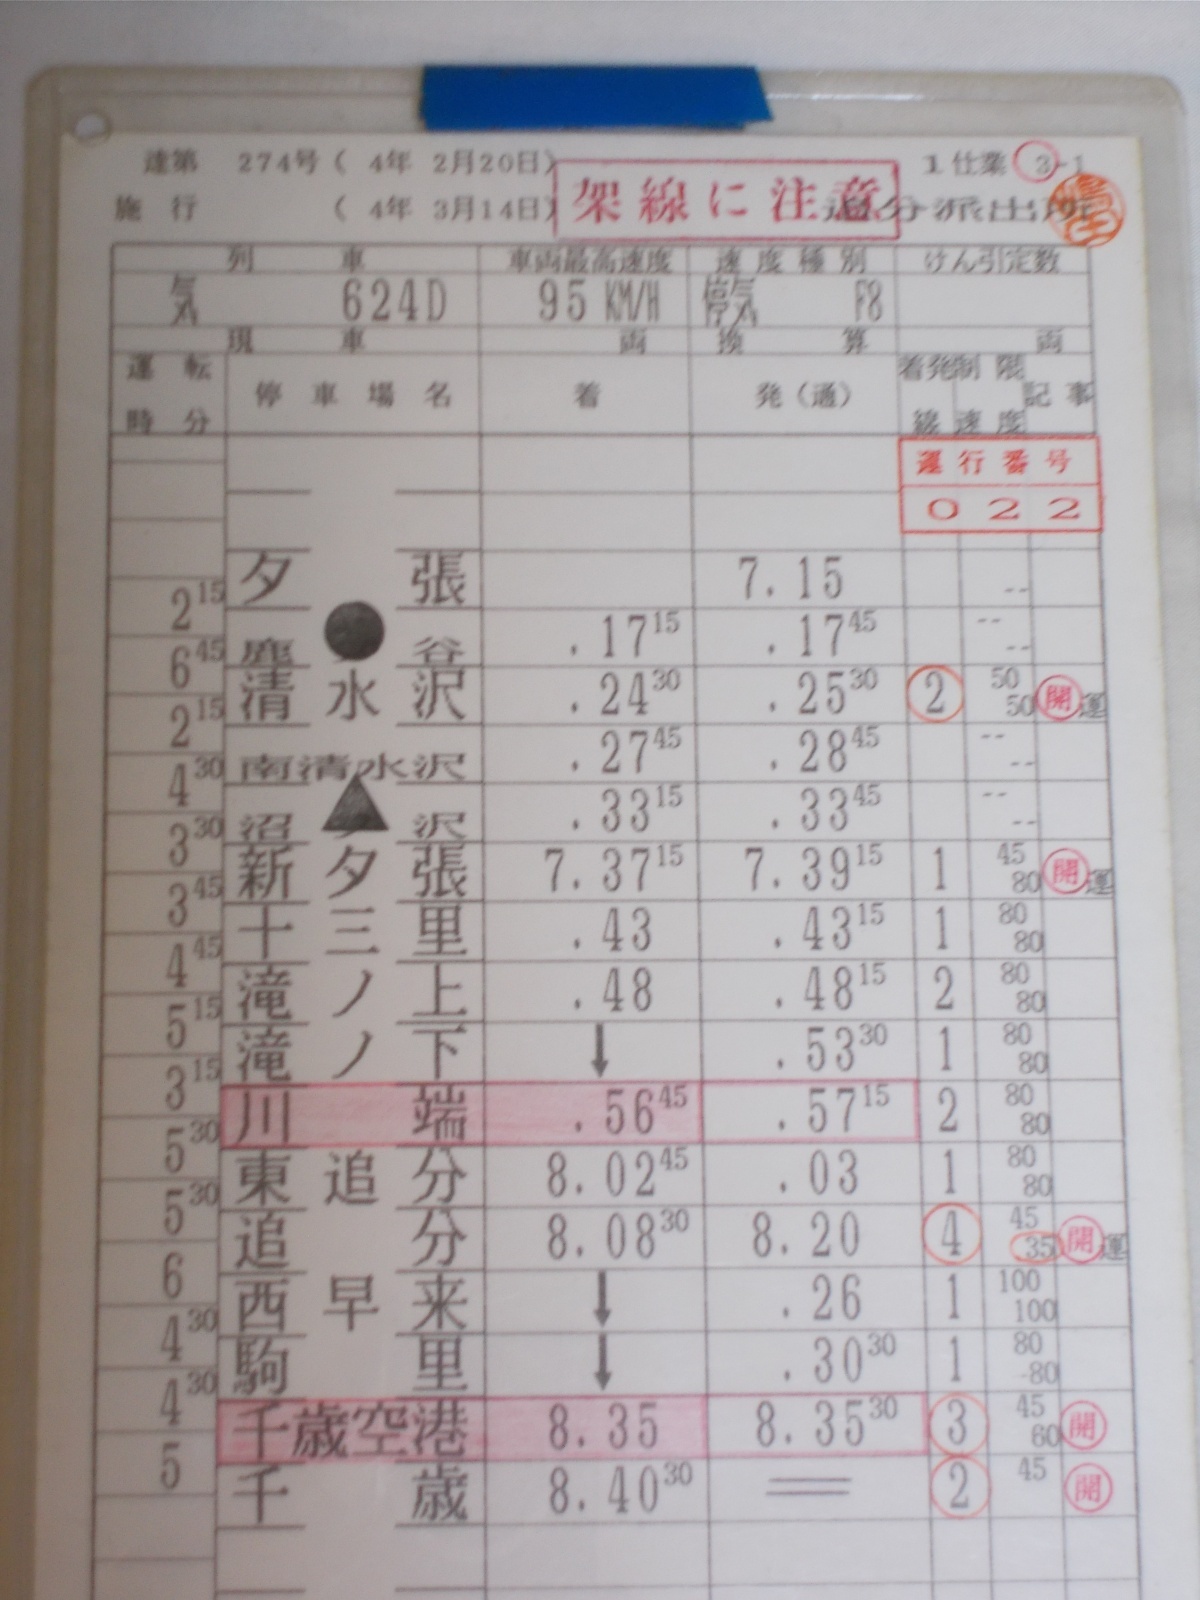 達第 274号( 4年 2月20日) 1仕業 3-1
施行 ( 4年 3月14日) 架線に注意 追分派出所
列車 車両最高速度 速度種別 けん引定数
気 624D 95 KM/H 停気 F8
現車 両 換算 両
運転時分 停車場名 着 発(通) 着発線 制限速度 記事
運行番号
022
夕張 7.15 --
2 15
鹿ノ谷 .17 15 .17 45 -- --
6 45
清水沢 .24 30 .25 30 2 50 50 開 運
2 15
南清水沢 .27 45 .28 45 -- --
4 30
沼ノ沢 .33 15 .33 45 -- --
3 30
新夕張 7.37 15 7.39 15 1 45 80 開 運
3 45
十三里 .43 .43 15 1 80 80
4 45
滝ノ上 .48 .48 15 2 80 80
5 15
滝ノ下 ↓ .53 30 1 80 80
3 15
川端 .56 45 .57 15 2 80 80
5 30
東追分 8.02 45 .03 1 80 80
5 30
追分 8.08 30 8.20 4 45 35 開 運
6
西早来 ↓ .26 1 100 100
4 30
駒里 ↓ .30 30 1 80 80
4 30
千歳空港 8.35 8.35 30 3 45 60 開
5
千歳 8.40 30 2 45 開